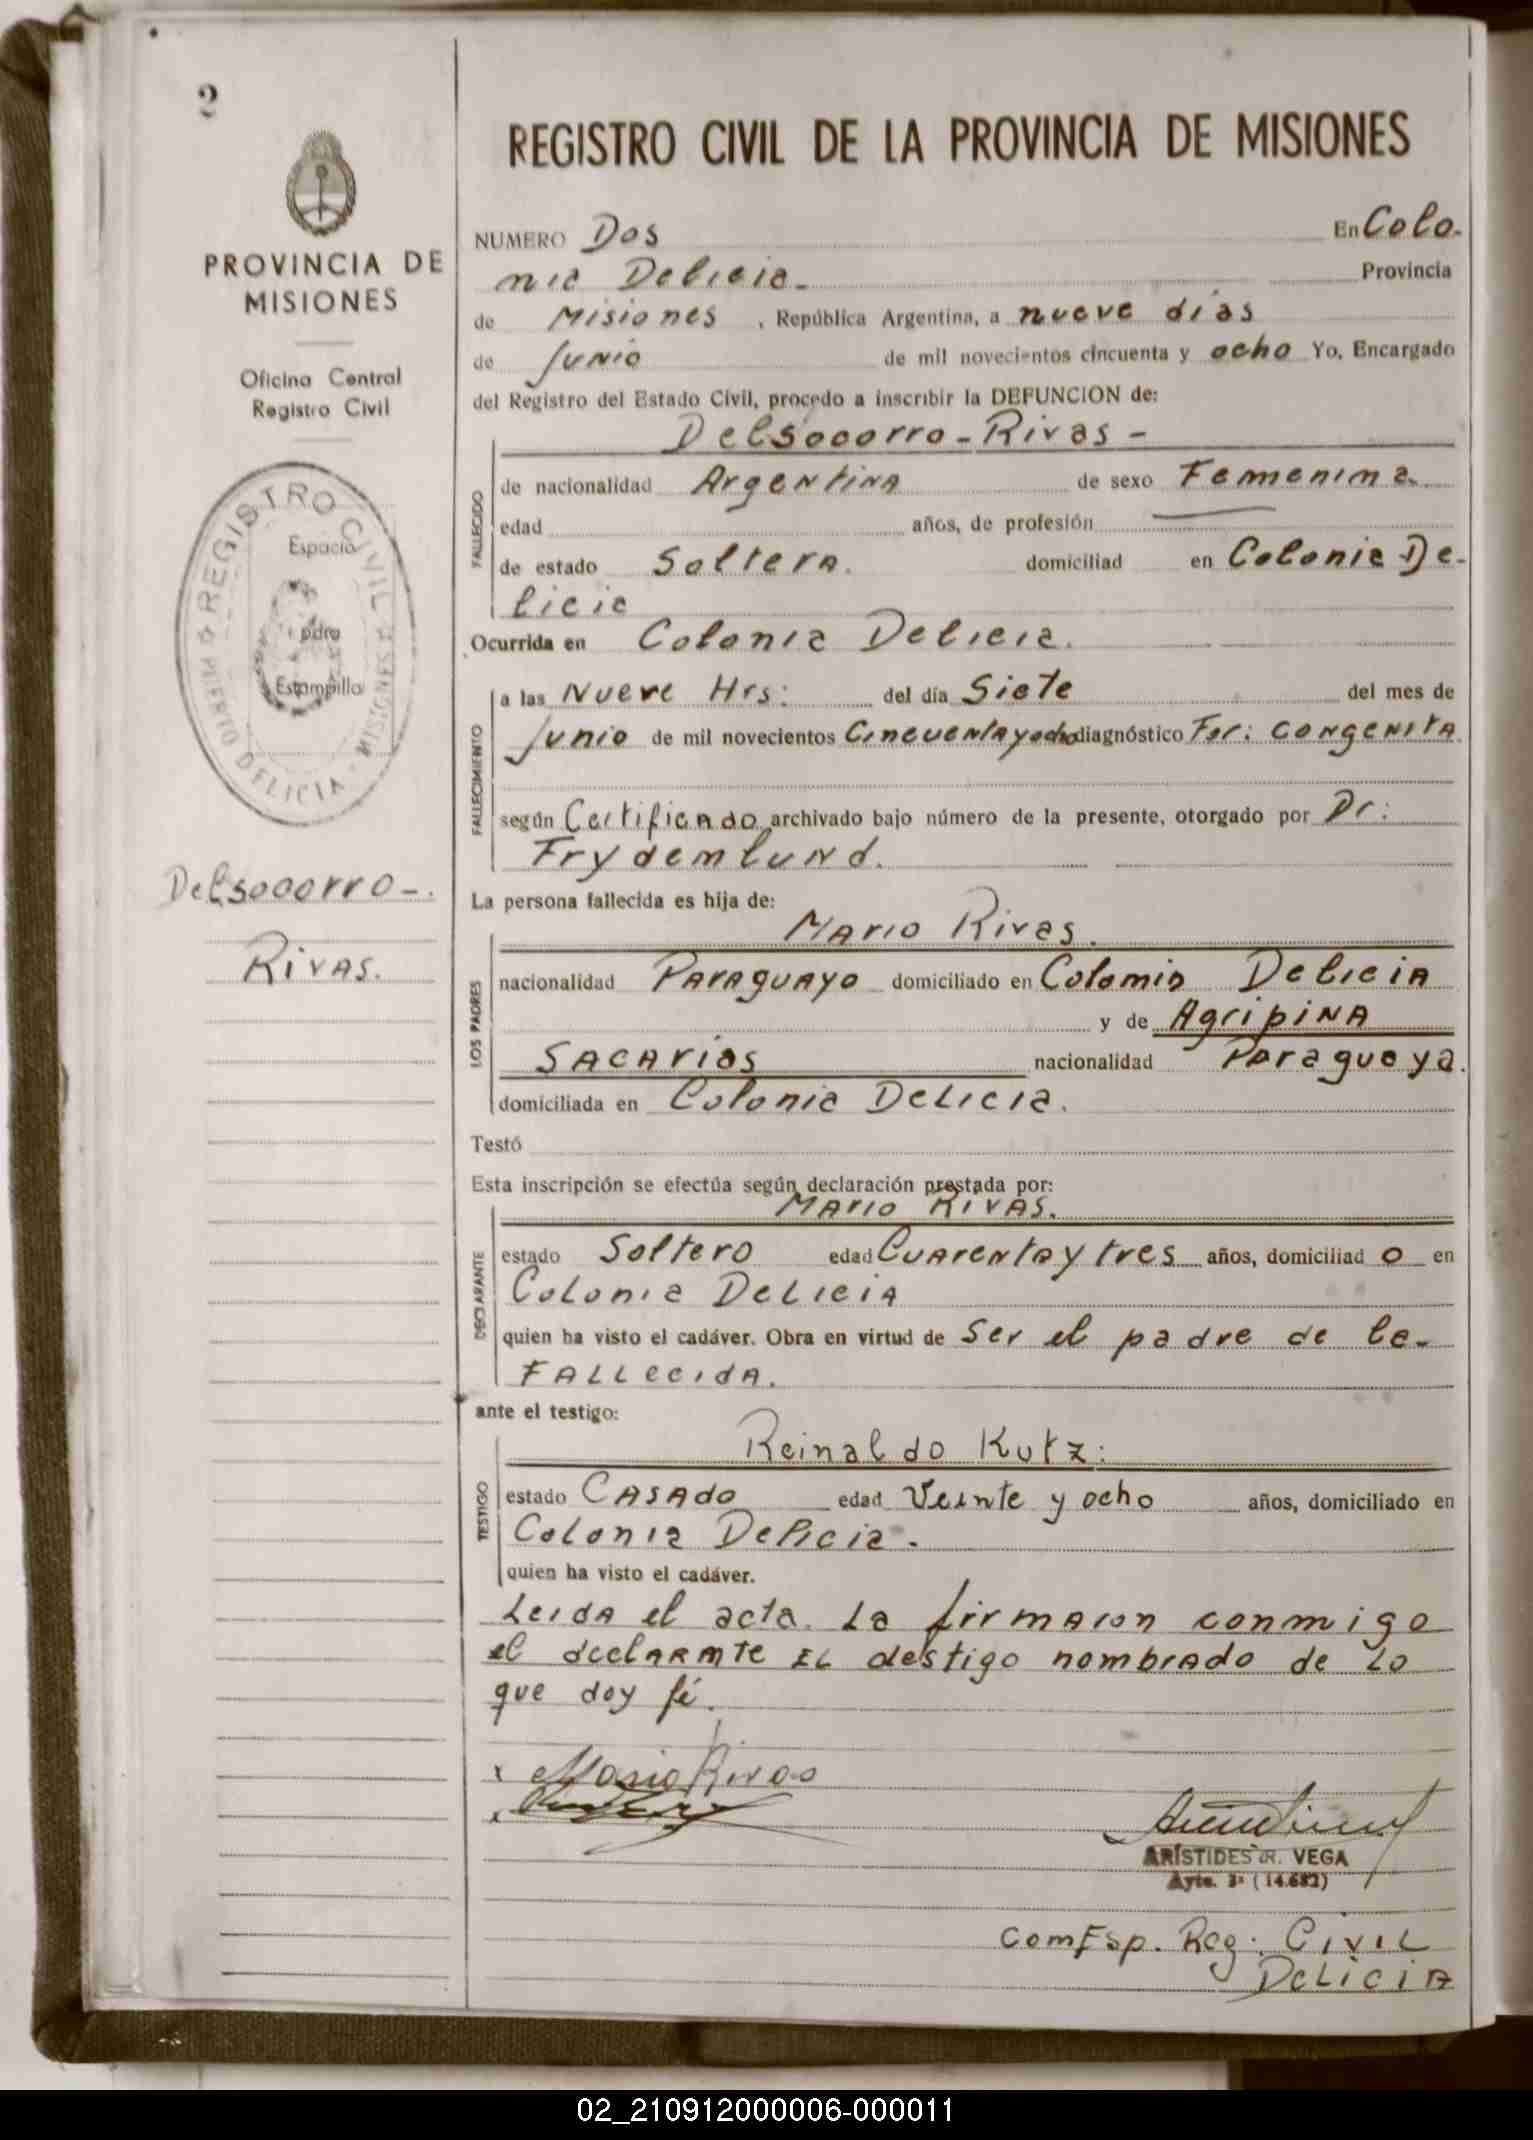 2
PROVINCIA DE
MISIONES
Oficina Central
Registro Civil
REGISTRO CIVIL
MISIONES
COLONIA DELICIA
Espacio
para
Estampilla
Delsocorro-.
Rivas.
REGISTRO CIVIL DE LA PROVINCIA DE MISIONES
NUMERO Dos En Colo-
nia Delicia- Provincia
de Misiones , República Argentina, a nueve días
de Junio de mil novecientos cincuenta y ocho Yo, Encargado
del Registro del Estado Civil, procedo a inscribir la DEFUNCION de:
Delsocorro-Rivas-
FALLECIDO
de nacionalidad Argentina de sexo Femenina.
edad años, de profesión
de estado Soltera. domiciliad en Colonia De-
licia
Ocurrida en Colonia Delicia.
FALLECIMIENTO
a las Nueve Hrs: del día Siete del mes de
Junio de mil novecientos Cincuentayocho diagnóstico For: CONgENITA.
según Certificado archivado bajo número de la presente, otorgado por Dr:
Frydemlund.
La persona fallecida es hija de:
LOS PADRES
Mario Rivas.
nacionalidad Paraguayo domiciliado en Colomia Delicia
y de Agripina
Sacarias nacionalidad Paraguaya.
domiciliada en Colonia Delicia.
Testó
Esta inscripción se efectúa según declaración prestada por:
DECLARANTE
Mario Rivas.
estado Soltero edad Cuarentaytres años, domiciliad o en
Colonia Delicia
quien ha visto el cadáver. Obra en virtud de Ser el padre de la-
Fallecida.
ante el testigo:
TESTIGO
Reinaldo Kutz:
estado Casado edad Veinte y ocho años, domiciliado en
Colonia Delicia.
quien ha visto el cadáver.
Leida el acta. La firmaron conmigo
el declaramte EL destigo nombrado de Lo
que doy fé.
x Mario Rivas
ARÍSTIDES R. VEGA
Ayte. 3ª (14.682)
ComEsp. Reg. Civil
Delicia
02_210912000006-000011